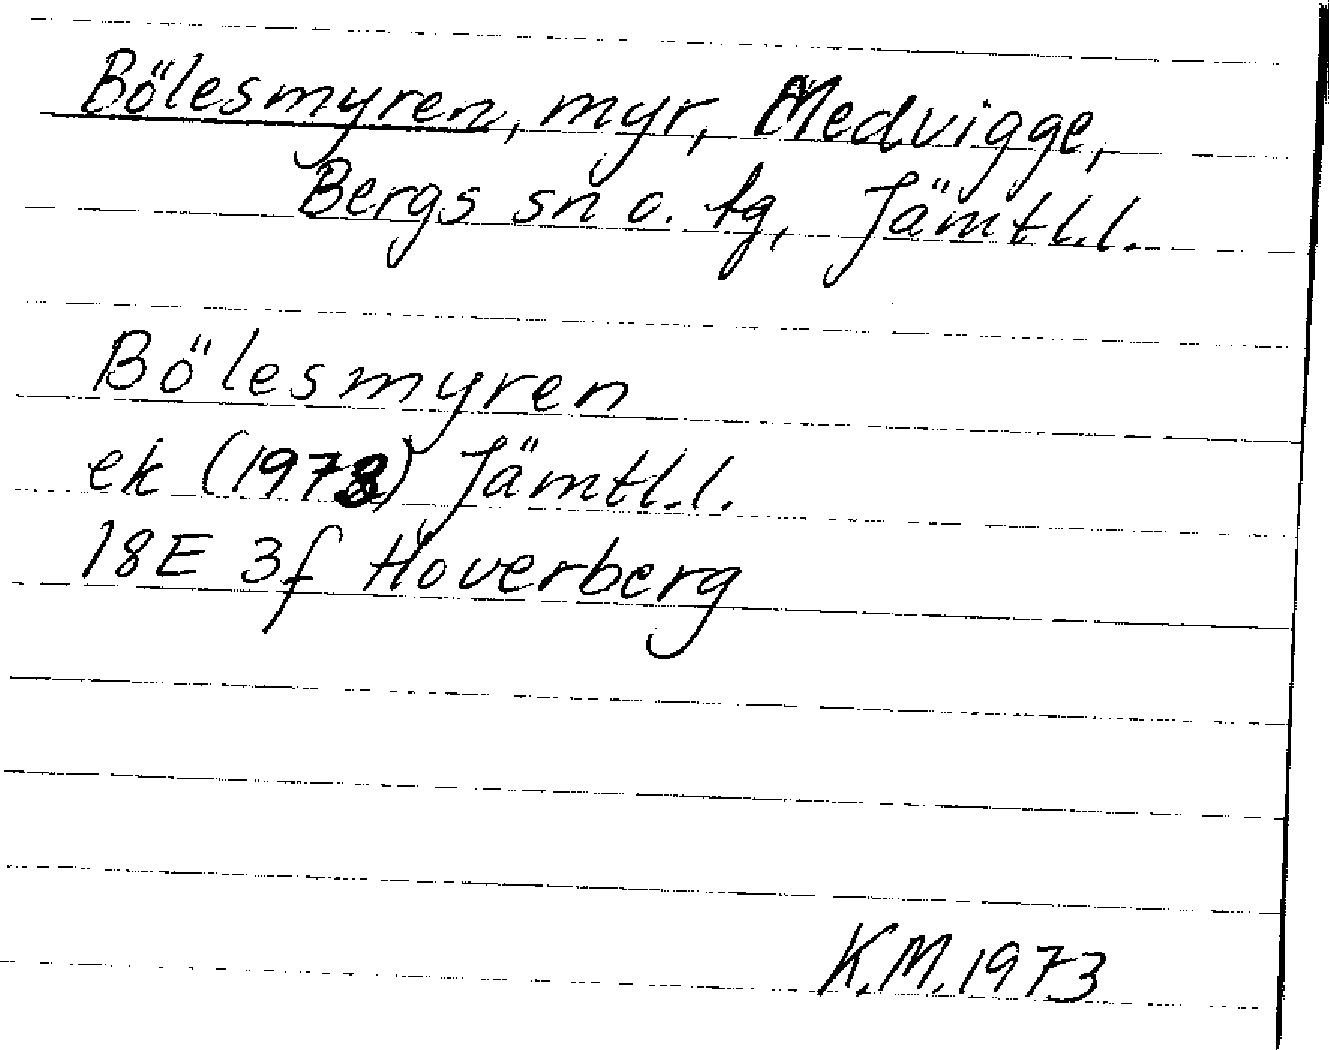 Bölesmyren, myr, Medvigge,
Bergs sn o. tg, Jämtl.l.
Bölesmyren
ek (1973) Jämtl.l.
18E 3f Hoverberg
K.M. 1973